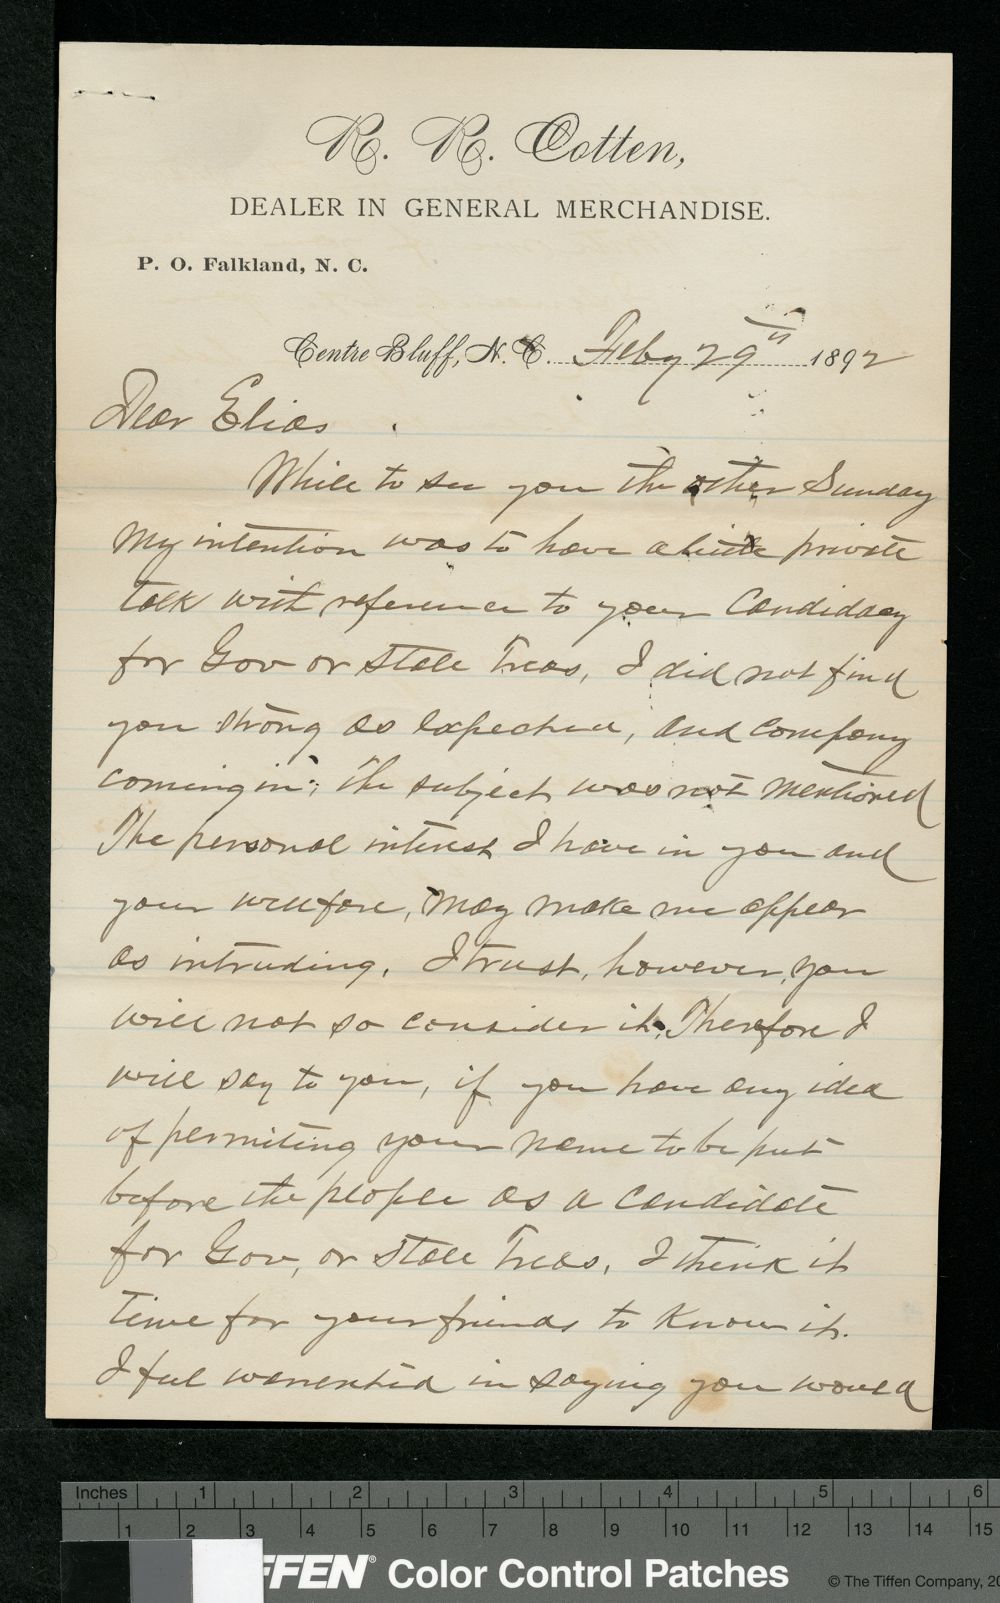 R. R. Cotten,
DEALER IN GENERAL MERCHANDISE.
P. O. Falkland, N. C.
Centre Bluff, N. C. Feby 29th 1892
Dear Elias
While to see you the other Sunday
My intention was to have a little private
talk with reference to your Candidacy
for Gov or State Treas, I did not find
you strong as expected, and company
coming in; the subject was not mentioned
The personal interest I have in you and
your wellfare, may make me appear
as intruding. I trust, however, you
will not so consider it. Therefore I
will say to you, if you have any idea
of permiting your name to be put
before the people as a candidate
for Gov, or State Treas, I think it
time for your friends to know it.
I feel warented in saying you would
Inches 1 2 3 4 5 6
1 2 3 4 5 6 7 8 9 10 11 12 13 14 15
FFEN® Color Control Patches
© The Tiffen Company, 20